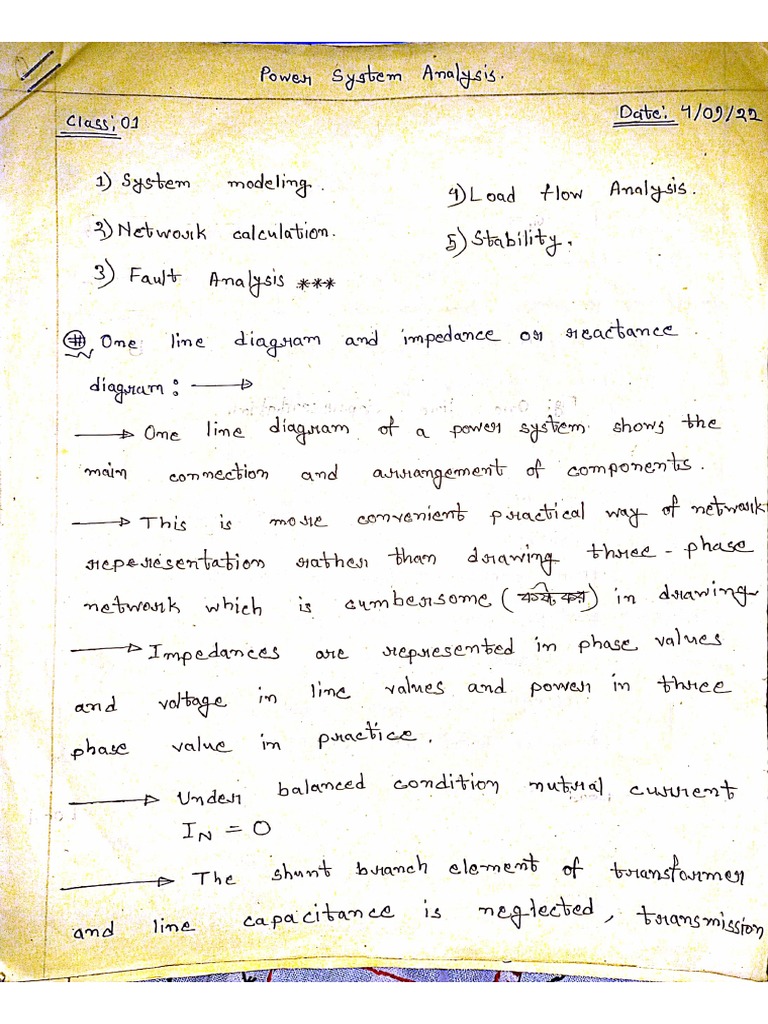 Power System Analysis.
Class; 01
Date: 4/09/22
1) System modeling.
2) Network calculation.
3) Fault Analysis ***
4) Load flow Analysis.
5) Stability.
# One line diagram and impedance or reactance
diagram: →
→ One line diagram of a power system shows the
main connection and arrangement of components.
→ This is more convenient practical way of network
reperesentation rather than drawing three-phase
network which is cumbersome ( ) in drawing
→ Impedances are represented in phase values
and voltage in line values and power in three
phase value in practice.
→ Under balanced condition nutral current
I_N = 0
→ The shunt branch element of transformer
and line capacitance is neglected, transmission